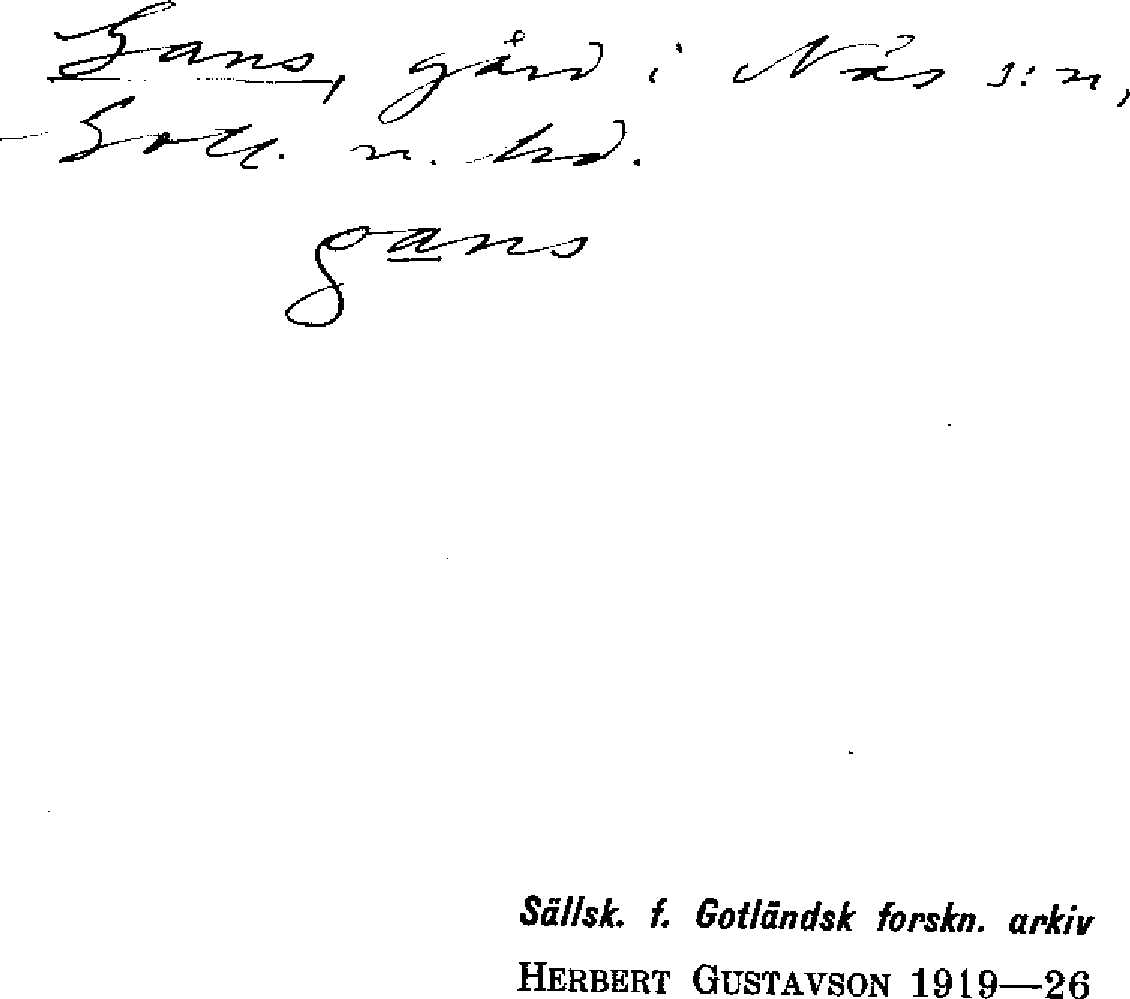 Gans, gård i Näs s:n,
Gotl. n. hd.
gans
Sällsk. f. Gotländsk forskn. arkiv
HERBERT GUSTAVSON 1919—26